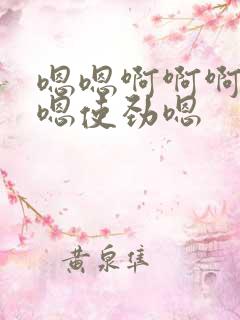 嗯嗯啊啊啊
嗯使劲嗯
黄泉隼